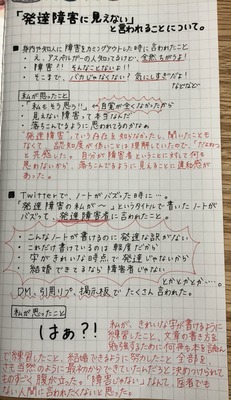 「発達障害に見えない」
と言われることについて。
■ 身内や知人に障害をカミングアウトした時に言われたこと
・え、アスペルガーの人知ってるけど、全然ちがうよ!
・障害!! そんなことないよ!
・そこまで、バカじゃなくない? 気にしすぎだよ!
などなど
私が思ったこと
・「私もそう思う!」←自覚が全くなかったから
・見えない障害って本当なんだ
・落ちこんでるように思われてるのかなぁ
発達障害っていう存在を知らなかったし、聞いたこともなくて、
認知度が低いことは理解していたので、「だよね」
と共感した。自分が障害者ということに対して何も
思わないから、落ちこんでるように見えることに違和感が
あった。
■ Twitterで、ノートがバズった時に…。
「発達障害の私が…」というタイトルで書いたノートが
バズって、発達障害者に言われたこと。
・こんなノートが書けるのに発達な訳がない
・これだけ書けているのは軽度だから
・字がきれいな時点で発達じゃないから
・結婚できてるなら障害者じゃない
とかとかとか…。
DM、引用リプ、掲示板でたくさん言われた。
私が思ったこと
はぁ?!
私が、きれいな字が書けるように
練習したこと、文章の書き方を
勉強するために何冊も本を読ん
で練習したこと、結婚できるように努力したこと 全部を
さも当然のように最初からできていたんだろと決めつけられて
ものすごく腹が立った。「障害じゃない」なんて、医者でも
ない人間に言われたくないと思った。